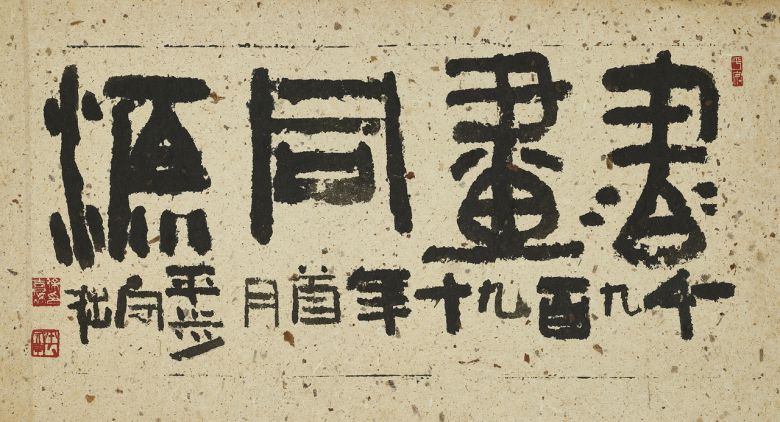 書畫同源
千九百九十年首月平守拙